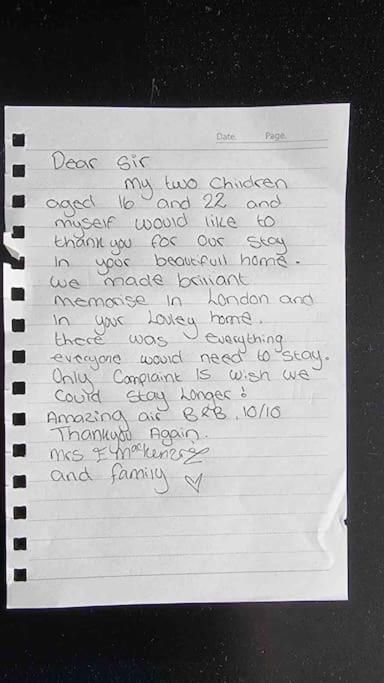 Date. Page.
Dear Sir
My two Children
aged 16 and 22 and
myself would like to
thank you for our stay
In your beautifull home.
we made brilliant
memorise In London and
In your Lovley home.
there was everything
everyone would need to stay.
Only Complaint Is wish we
Could Stay Longer!
Amazing air B&B. 10/10
Thankyou Again.
Mrs E Mackenzie
and family